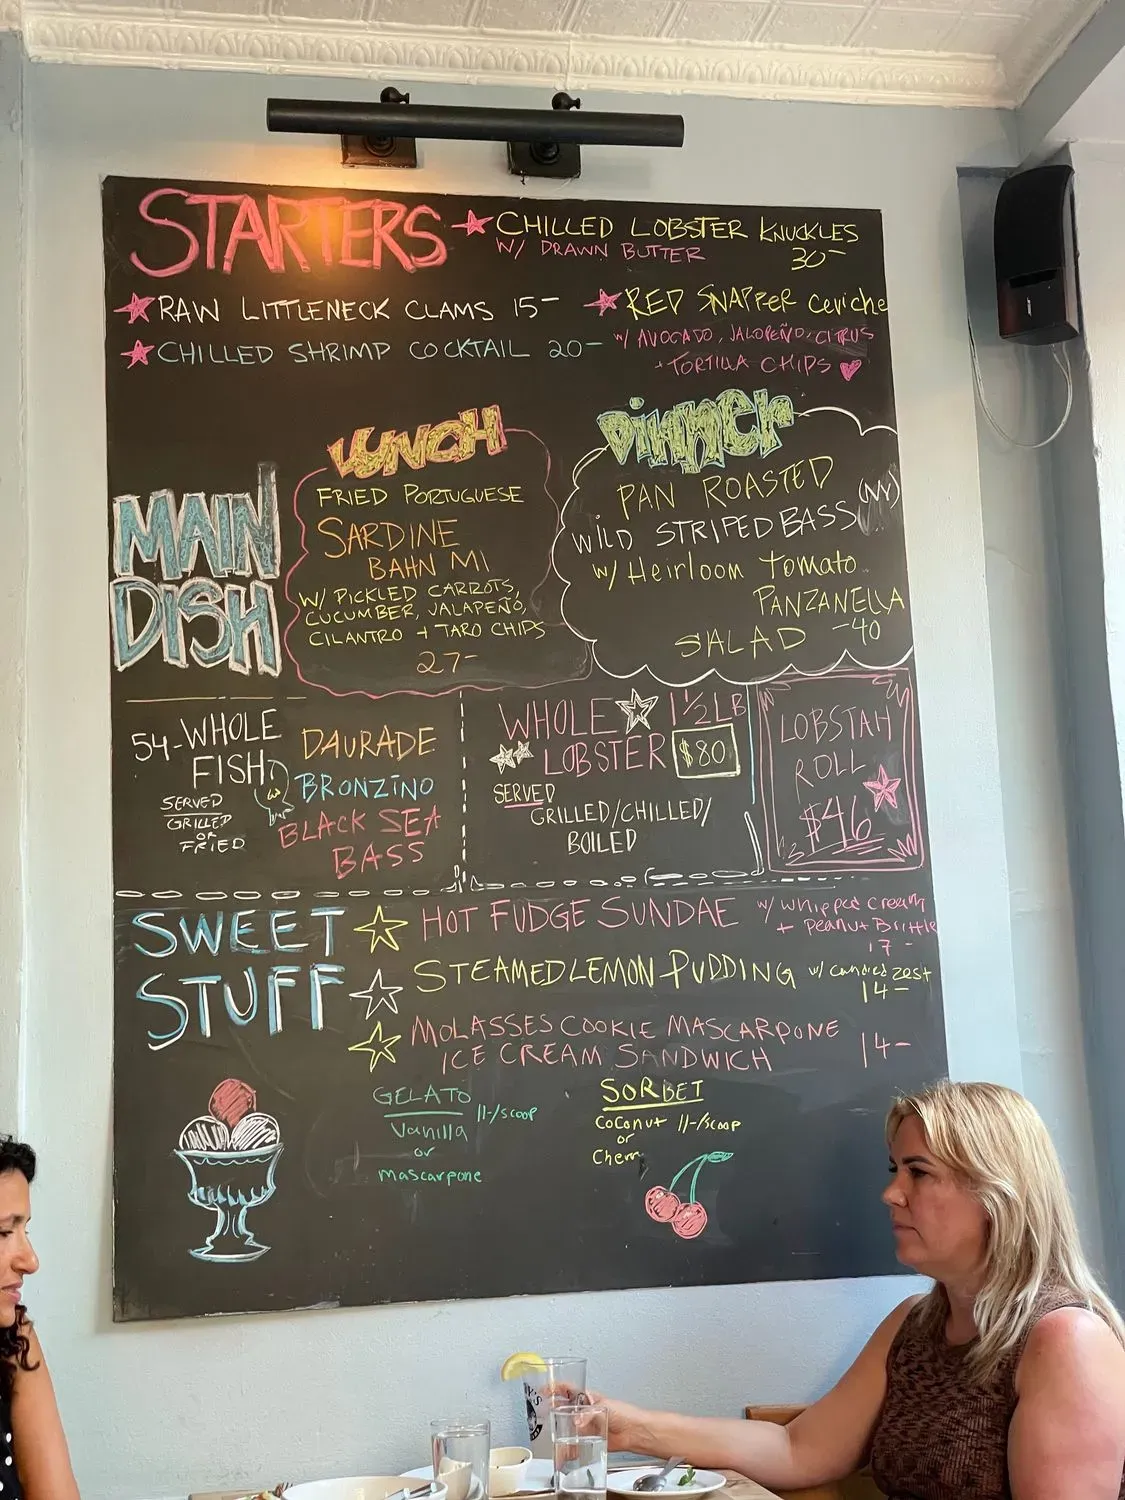 STARTERS
CHILLED LOBSTER KNUCKLES
W/ DRAWN BUTTER
30-
RAW LITTLENECK CLAMS 15-
CHILLED SHRIMP COCKTAIL 20-
RED SNAPPER Ceviche
W/ AVOCADO, JALOPEÑO, CITRUS
+ TORTILLA CHIPS
MAIN
DISH
LUNCH
FRIED PORTUGUESE
SARDINE
BAHN MI
W/ PICKLED CARROTS,
CUCUMBER, JALAPEÑO,
CILANTRO + TARO CHIPS
27-
DINNER
PAN ROASTED
WILD STRIPED BASS (NY)
w/ Heirloom Tomato
PANZANELLA
SALAD -40
54- WHOLE
FISH
SERVED
GRILLED
OR
FRIED
DAURADE
BRONZINO
BLACK SEA
BASS
WHOLE 1 1/2 LB
LOBSTER $80
SERVED
GRILLED/CHILLED/
BOILED
LOBSTAH
ROLL
$46
SWEET
STUFF
HOT FUDGE SUNDAE w/ whipped cream
+ Peanut Brittle
17-
STEAMED LEMON PUDDING w/ candied zest
14-
MOLASSES COOKIE MASCARPONE
ICE CREAM SANDWICH 14-
GELATO
11-/scoop
Vanilla
or
mascarpone
SORBET
Coconut 11-/scoop
or
Cherry